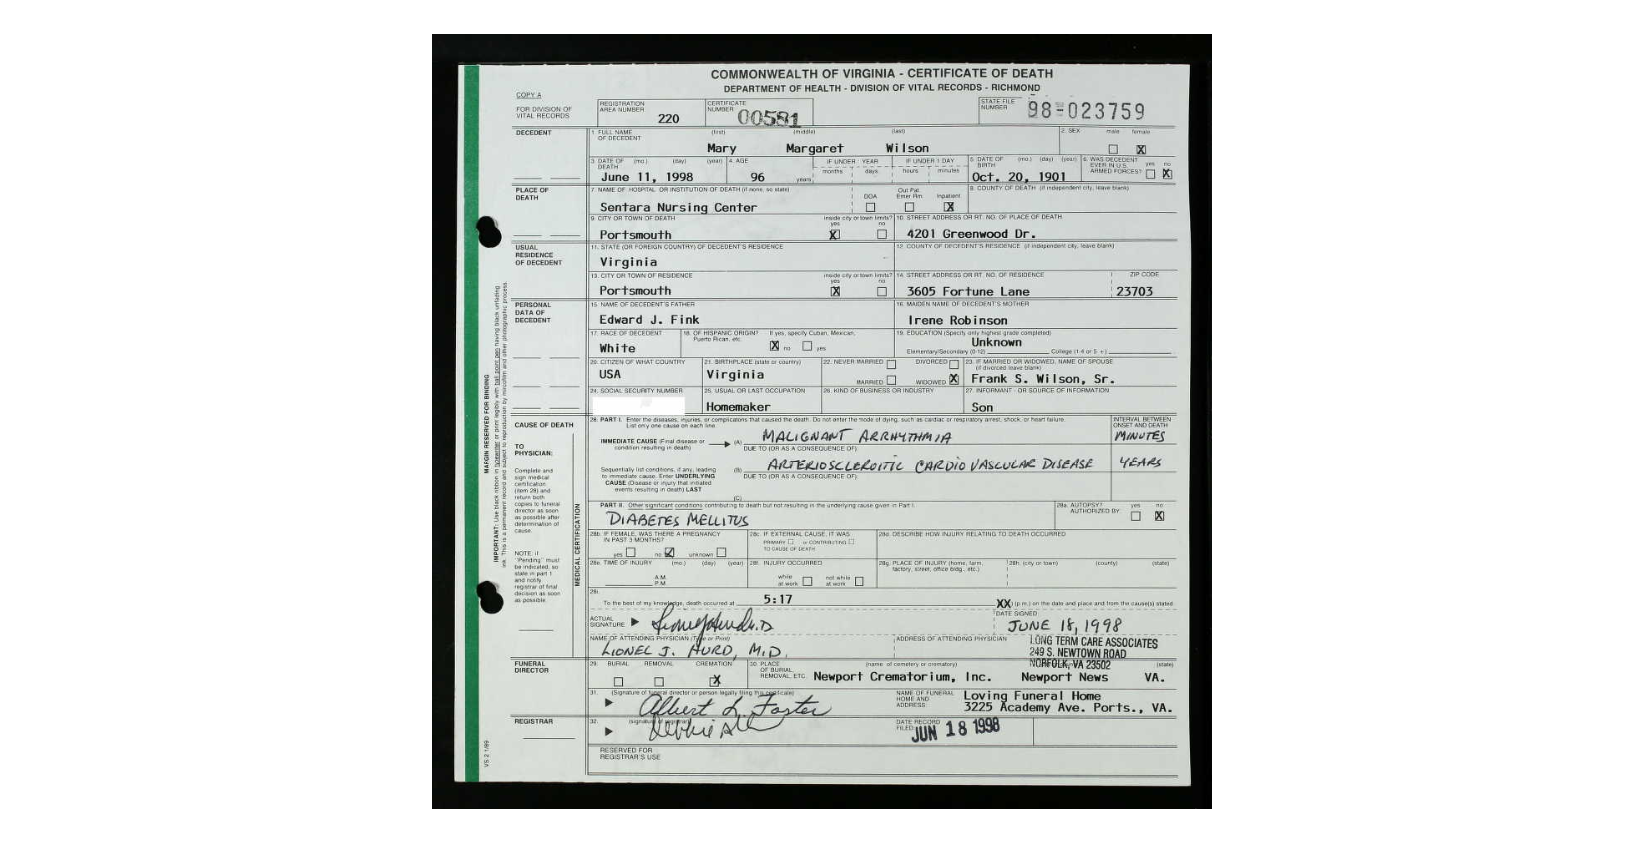 COMMONWEALTH OF VIRGINIA - CERTIFICATE OF DEATH
DEPARTMENT OF HEALTH - DIVISION OF VITAL RECORDS - RICHMOND
COPY A
FOR DIVISION OF VITAL RECORDS
REGISTRATION AREA NUMBER 220
CERTIFICATE NUMBER 00581
STATE FILE NUMBER 98-023759
DECEDENT
1. FULL NAME OF DECEDENT (first) (middle) (last)
Mary Margaret Wilson
2. SEX male female X
3. DATE OF DEATH (mo.) (day) (year)
June 11, 1998
4. AGE 96 years
IF UNDER 1 YEAR months days
IF UNDER 1 DAY hours minutes
5. DATE OF BIRTH (mo.) (day) (year)
Oct. 20, 1901
6. WAS DECEDENT EVER IN U.S. ARMED FORCES? yes no X
PLACE OF DEATH
7. NAME OF HOSPITAL OR INSTITUTION OF DEATH (if none, so state)
Sentara Nursing Center
DOA Out Pat. Emer Rm. Inpatient X
8. COUNTY OF DEATH (if independent city, leave blank)
9. CITY OR TOWN OF DEATH inside city or town limits? yes no
Portsmouth X
10. STREET ADDRESS OR RT. NO. OF PLACE OF DEATH
4201 Greenwood Dr.
USUAL RESIDENCE OF DECEDENT
11. STATE (OR FOREIGN COUNTRY) OF DECEDENT'S RESIDENCE
Virginia
12. COUNTY OF DECEDENT'S RESIDENCE (if independent city, leave blank)
13. CITY OR TOWN OF RESIDENCE inside city or town limits? yes no
Portsmouth X
14. STREET ADDRESS OR RT. NO. OF RESIDENCE ZIP CODE
3605 Fortune Lane 23703
PERSONAL DATA OF DECEDENT
15. NAME OF DECEDENT'S FATHER
Edward J. Fink
16. MAIDEN NAME OF DECEDENT'S MOTHER
Irene Robinson
17. RACE OF DECEDENT
White
18. OF HISPANIC ORIGIN? If yes, specify Cuban, Mexican, Puerto Rican, etc.
X no yes
19. EDUCATION (Specify only highest grade completed)
Unknown
Elementary/Secondary (0-12) College (1-4 or 5 +)
20. CITIZEN OF WHAT COUNTRY
USA
21. BIRTHPLACE (state or country)
Virginia
22. NEVER MARRIED DIVORCED
MARRIED WIDOWED X
23. IF MARRIED OR WIDOWED, NAME OF SPOUSE (if divorced leave blank)
Frank S. Wilson, Sr.
24. SOCIAL SECURITY NUMBER
25. USUAL OR LAST OCCUPATION
Homemaker
26. KIND OF BUSINESS OR INDUSTRY
27. INFORMANT - OR SOURCE OF INFORMATION
Son
CAUSE OF DEATH
TO PHYSICIAN:
Complete and sign medical certification (item 28) and return both copies to funeral director as soon as possible after determination of cause.
NOTE: if "Pending" must be indicated, so state in part 1 and notify registrar of final decision as soon as possible
MEDICAL CERTIFICATION
28. PART I. Enter the diseases, injuries, or complications that caused the death. Do not enter the mode of dying, such as cardiac or respiratory arrest, shock, or heart failure. List only one cause on each line.
INTERVAL BETWEEN ONSET AND DEATH
IMMEDIATE CAUSE (Final disease or condition resulting in death) (A) MALIGNANT ARRHYTHMIA MINUTES
DUE TO (OR AS A CONSEQUENCE OF):
Sequentially list conditions, if any, leading to immediate cause. Enter UNDERLYING CAUSE (Disease or injury that initiated events resulting in death) LAST
(B) ARTERIOSCLEROITIC CARDIO VASCULAR DISEASE YEARS
DUE TO (OR AS A CONSEQUENCE OF):
(C)
PART II. Other significant conditions contributing to death but not resulting in the underlying cause given in Part I.
DIABETES MELLITUS
28a. AUTOPSY AUTHORIZED BY: yes no X
28b. IF FEMALE, WAS THERE A PREGNANCY IN PAST 3 MONTHS?
yes no unknown
28c. IF EXTERNAL CAUSE, IT WAS
PRIMARY or CONTRIBUTING
TO CAUSE OF DEATH
28d. DESCRIBE HOW INJURY RELATING TO DEATH OCCURRED
28e. TIME OF INJURY (mo.) (day) (year)
A.M.
P.M.
28f. INJURY OCCURRED
while at work not while at work
28g. PLACE OF INJURY (home, farm, factory, street, office bldg., etc.)
28h. (city or town) (county) (state)
28i.
To the best of my knowledge, death occurred at 5:17 XX (p.m.) on the date and place and from the cause(s) stated.
ACTUAL SIGNATURE
DATE SIGNED
JUNE 18, 1998
NAME OF ATTENDING PHYSICIAN (Type or Print)
LIONEL J. HURD, M.D.
ADDRESS OF ATTENDING PHYSICIAN
LONG TERM CARE ASSOCIATES
249 S. NEWTOWN ROAD
NORFOLK, VA 23502
FUNERAL DIRECTOR
29. BURIAL REMOVAL CREMATION X
30. PLACE OF BURIAL, REMOVAL, ETC. (name of cemetery or crematory) (state)
Newport Crematorium, Inc. Newport News VA.
31. (Signature of funeral director or person legally filing this certificate)
Albert L. Foster
NAME OF FUNERAL HOME AND ADDRESS
Loving Funeral Home
3225 Academy Ave. Ports., VA.
REGISTRAR
32. (signature of registrar)
DATE RECORD FILED:
JUN 18 1998
RESERVED FOR REGISTRAR'S USE
MARGIN RESERVED FOR BINDING
VS-2 1/89